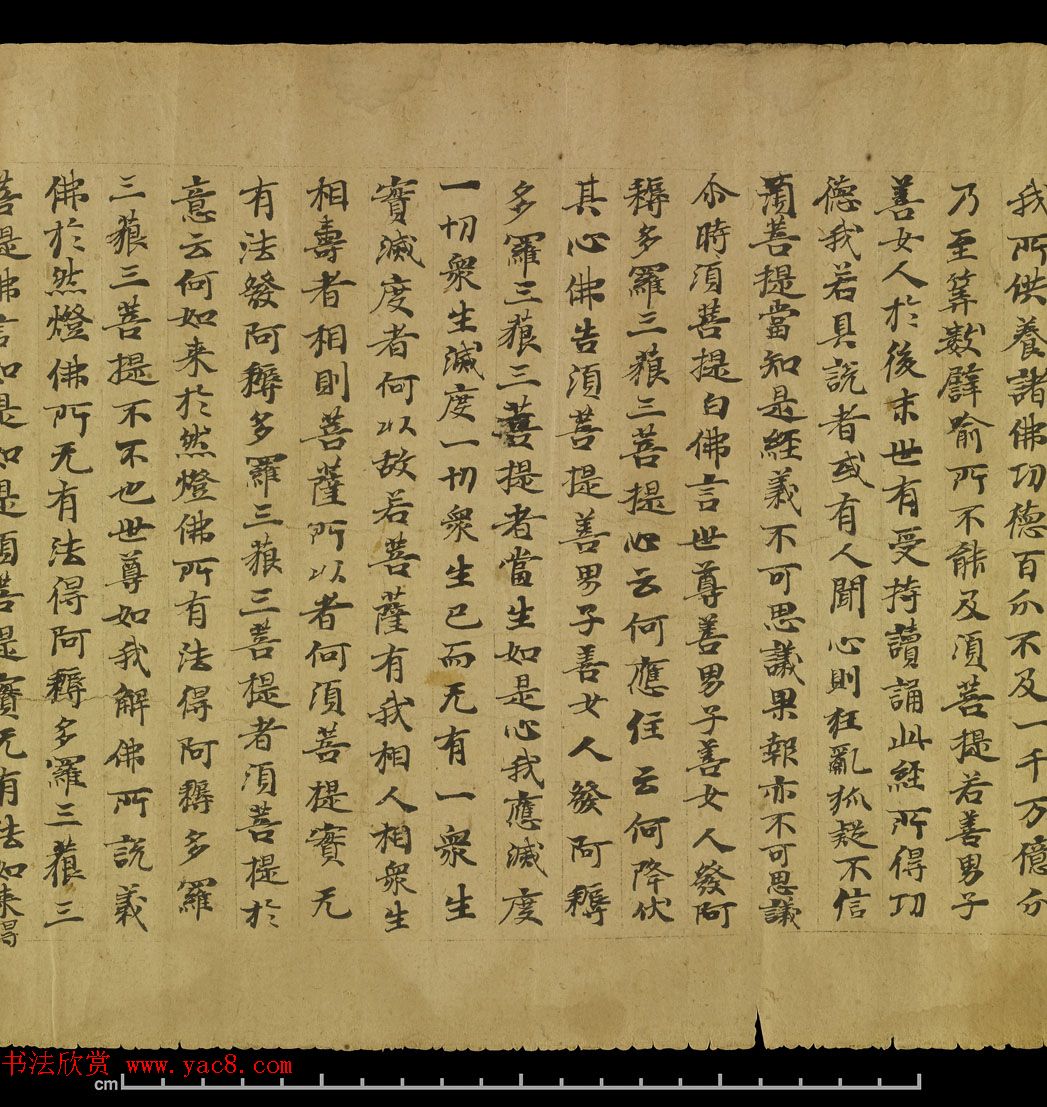 我所供養諸佛功德百分不及一千万億分
乃至筭數譬喻所不能及湏菩提若善男子
善女人於後末世有受持讀誦此經所得功
德我若具說者或有人聞心則狂亂狐疑不信
湏菩提當知是經義不可思議果報亦不可思議
尒時湏菩提白佛言世尊善男子善女人發阿
耨多羅三藐三菩提心云何應住云何降伏
其心佛告湏菩提善男子善女人發阿耨
多羅三藐三菩提者當生如是心我應滅度
一切衆生滅度一切衆生已而无有一衆生
實滅度者何以故若菩薩有我相人相衆生
相壽者相則菩薩所以者何湏菩提實无
有法發阿耨多羅三藐三菩提者湏菩提於
意云何如来於然燈佛所有法得阿耨多羅
三藐三菩提不不也世尊如我解佛所說義
佛於然燈佛所无有法得阿耨多羅三藐三
菩提佛言如是如是湏菩提實无有法如来得
书法欣赏 www.yac8.com
cm